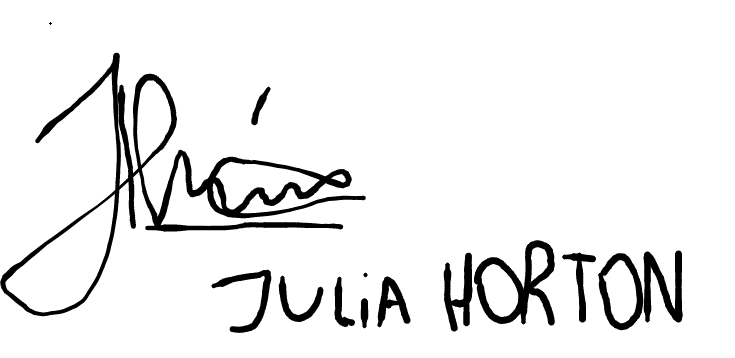 JULiA HORTON